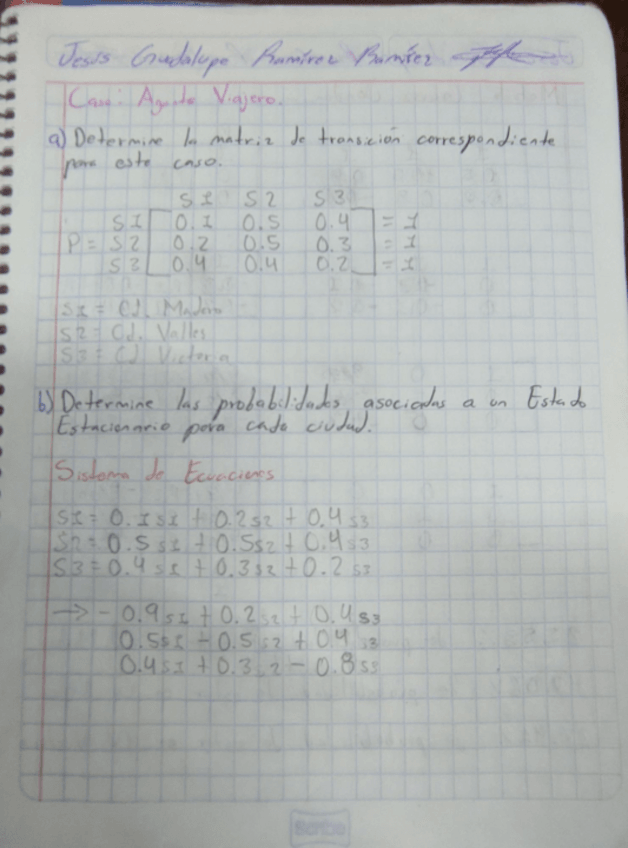 Jesús Guadalupe Ramírez Ramírez
Caso: Agente Viajero.
a) Determine la matriz de transición correspondiente
para este caso.
S1 S2 S3
S1 0.1 0.5 0.4 = 1
P = S2 0.2 0.5 0.3 = 1
S3 0.4 0.4 0.2 = 1
S1 = Cd. Madero
S2 = Cd. Valles
S3 = Cd. Victoria
b) Determine las probabilidades asociadas a un Estado
Estacionario para cada ciudad.
Sistema de Ecuaciones
S1 = 0.1 s1 + 0.2 s2 + 0.4 s3
S2 = 0.5 s1 + 0.5 s2 + 0.4 s3
S3 = 0.4 s1 + 0.3 s2 + 0.2 s3
→ - 0.9 s1 + 0.2 s2 + 0.4 s3
0.5 s1 - 0.5 s2 + 0.4 s3
0.4 s1 + 0.3 s2 - 0.8 s3
scribe